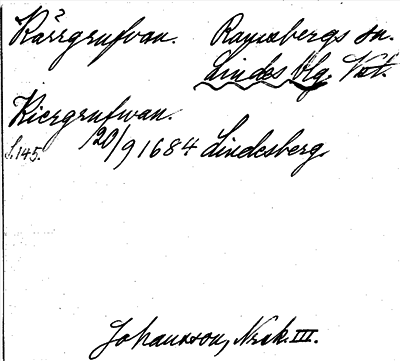 Kärrgrufvan. Ramsbergs sn.
Lindes blg. Vstm.
Kiergrufwan.
s. 145. 20/9 1684 Lindesberg
Johansson, Nrak. III.